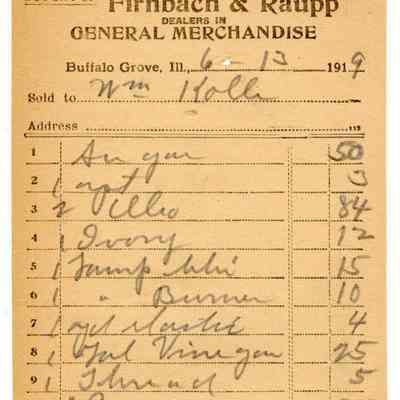 Firnbach & Raupp
DEALERS IN
GENERAL MERCHANDISE
Buffalo Grove, Ill., 6 - 13 1919
Sold to Wm Kolle
Address
1 Sugar 50
2 1 3
3 2 84
4 1 Ivory 12
5 1 Lamp 15
6 1 " Burner 10
7 1 yd elastic 4
8 1 Gal Vinegar 25
9 1 Thread 5